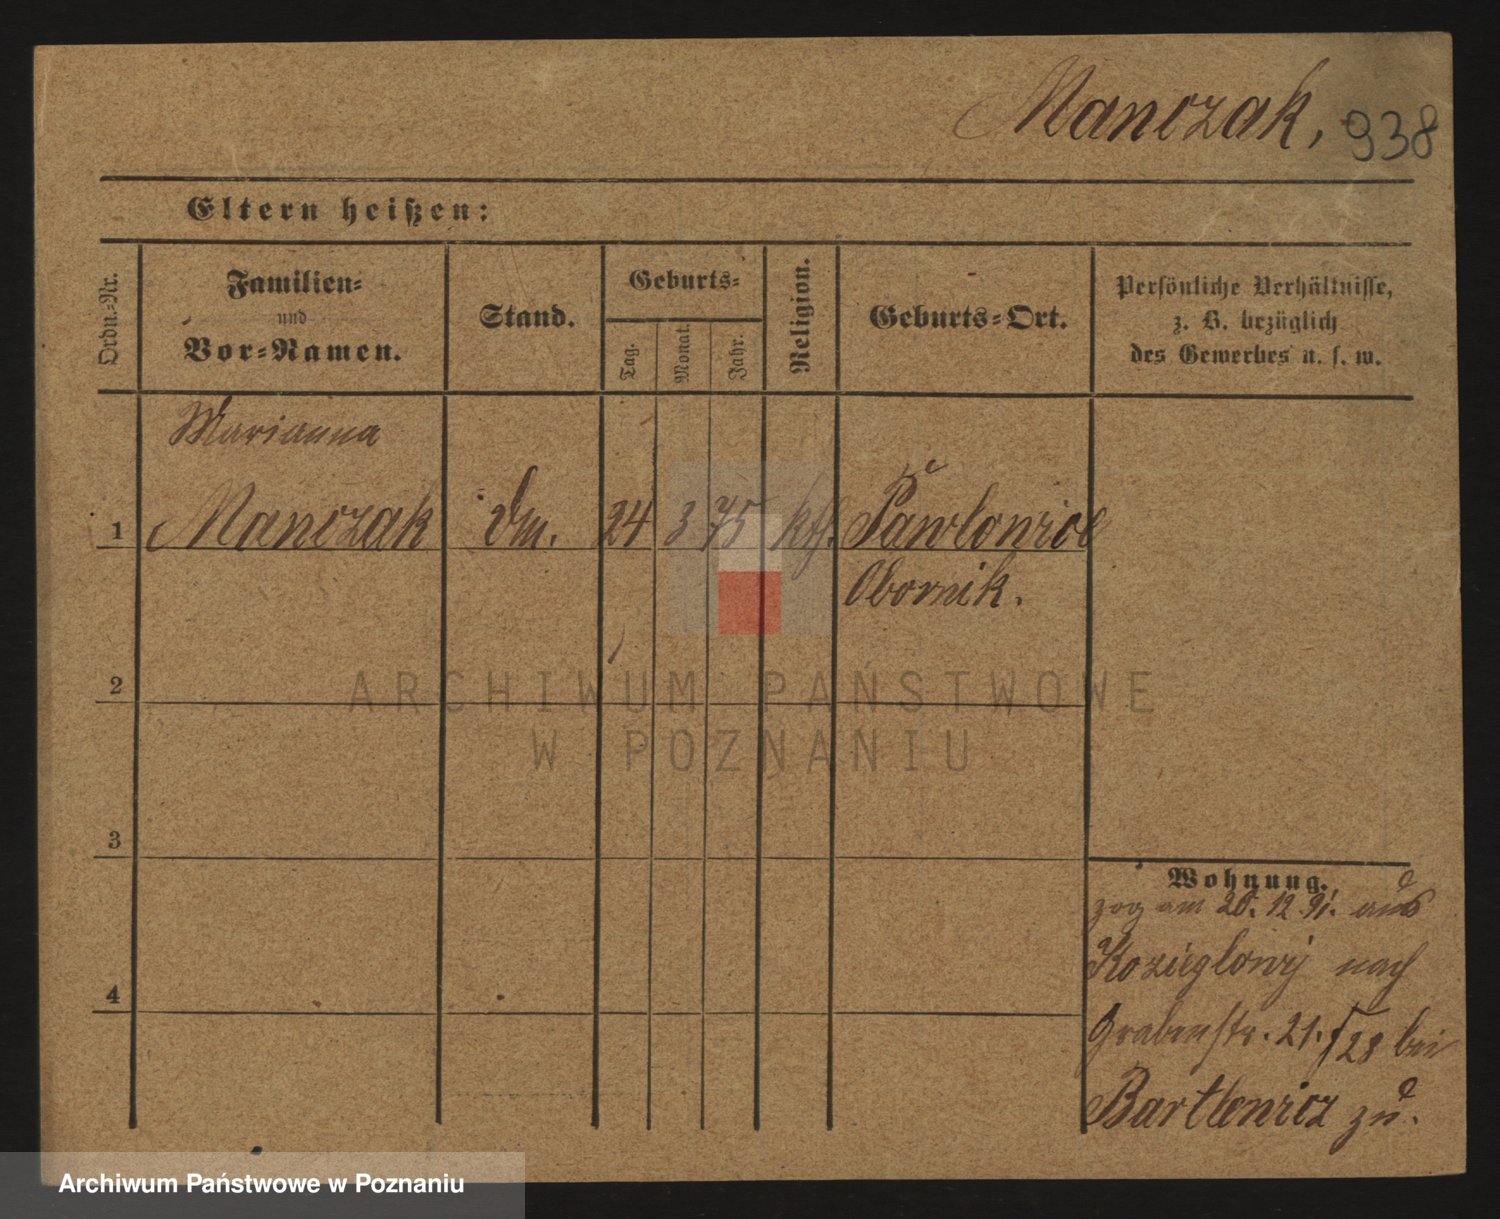 Manczak, 938
Eltern heißen:
Ordn.-Nr.
Familien-
und
Vor-Namen.
Stand.
Geburts-
Tag.
Monat.
Jahr.
Religion.
Geburts-Ort.
Persönliche Verhältnisse,
z. B. bezüglich
des Gewerbes u. s. w.
Marianna
1 Manczak 24 3 75 kth.
Obornik.
2
ARCHIWUM PAŃSTWOWE
W POZNANIU
3
Wohnung.
zog am 20. 12. 91. aus
Kozieglowÿ nach
4
Grabenstr. 21./28 bei
Bartlewicz zu.
Archiwum Państwowe w Poznaniu